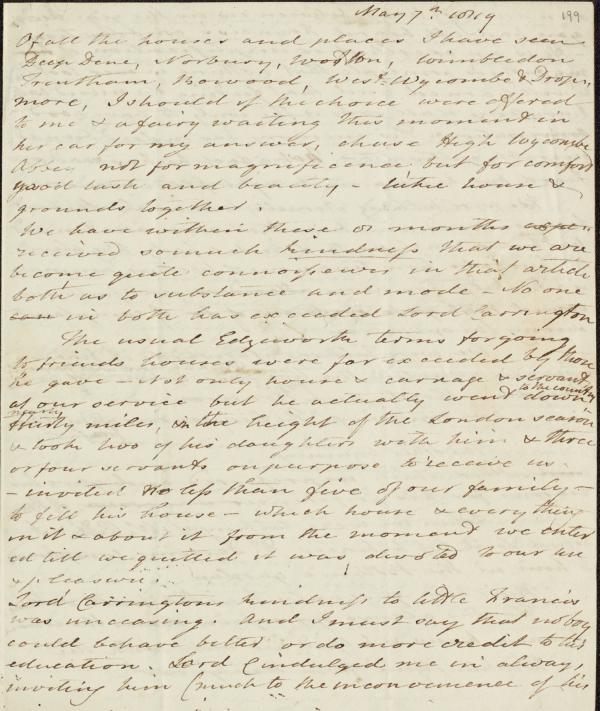 May 7th 1819
199
Of all the houses and places I have seen
Deep Dene, Norbury, Wooton, Wimbledon
Trentham, Bowood, West-Wycombe & Drop-
more, I should if the choice were offered
to me & a fairy waiting this moment in
her car for my answer, chuse High Wycombe
Abbey not for magnificence but for comfort
good taste and beauty – take house &
grounds together.
We have within these 8 months
received so much kindness that we are
become quite connoisseurs in that article
both as to substance and mode – No one
can in both has exceeded Lord Carrington
The usual Edgeworth terms for going
to friends houses were far exceeded by those
he gave – Not only house & carriage & servants
at our service but he actually went down to the country
nearly thirty miles, in the height of the London season
& took two of his daughters with him & three
or four servants on purpose to receive us –
– invited no less than five of our family –
to fill his house – which house & every thing
in it & about it from the moment we enter
ed till we quitted it was devoted to our use
& pleasure.
Lord Carringtons kindness to little Francis
was unceasing. And I must say that no boy
could behave better or do more credit to his
education. Lord C indulged me in always,
inviting him (much to the inconvenience of his